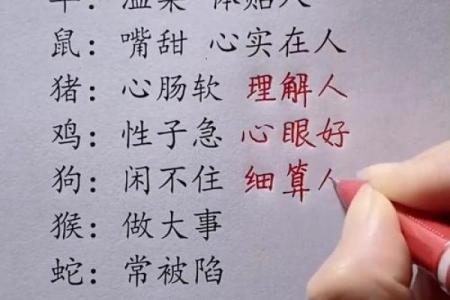 ：温柔 体贴人
鼠：嘴甜 心实在人
猪：心肠软 理解人
鸡：性子急 心眼好
狗：闲不住 细算人
猴：做大事
蛇：常被陷